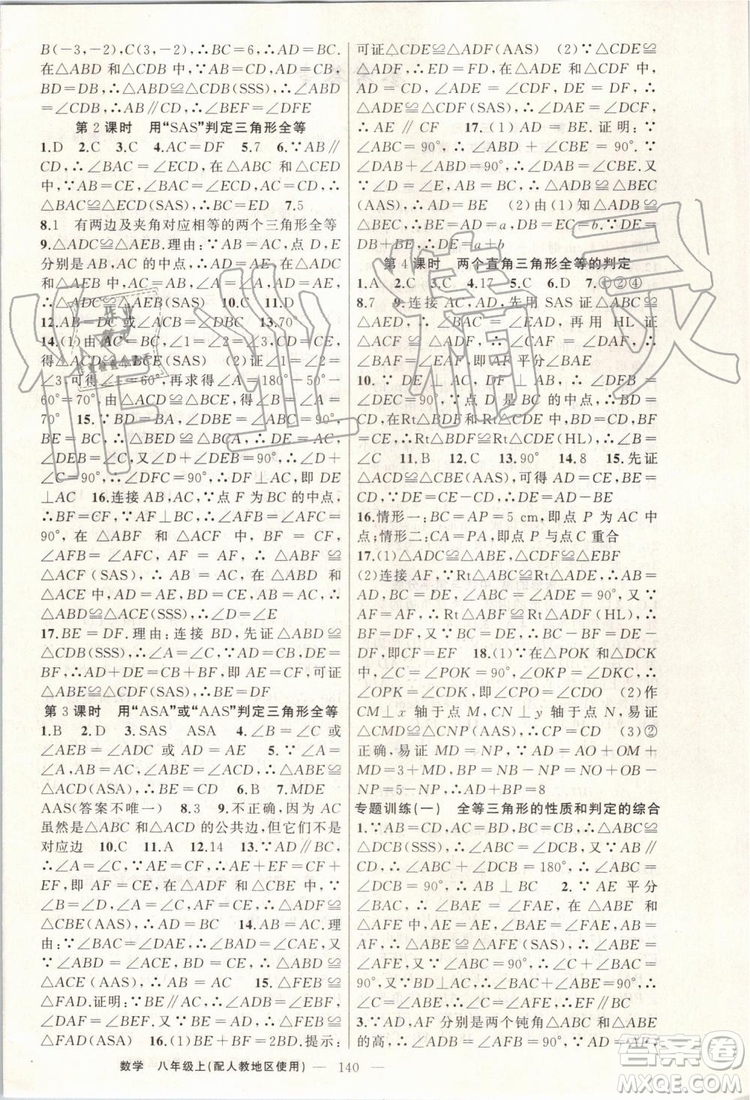 B(－3,－2),C(3,－2),∴BC＝6,∴AD＝BC.
在△ABD 和△CDB 中,∵AB＝CD,AD＝BC,
BD＝DB,∴△ABD≌△CDB(SSS),∴∠ABD
＝∠CDB,∴AB∥CD,∴∠BEF＝∠DFE
第 2 课时 用“SAS”判定三角形全等
1.D 2.C 3.C 4.AC＝DF 5.7 6.∵AB
∥CD,∴∠BAC＝∠ECD,在△ABC 和△CED
中,∵AB＝CE,∠BAC＝∠ECD,AC＝CD,∴
△BAC≌△ECD(SAS),∴BC＝ED 7.5
8.1 有两边及夹角对应相等的两个三角形全等
9.△ADC≌△AEB.理由:∵AB＝AC,点 D,E
分别是 AB,AC 的中点,∴AD＝AE.在△ADC
和△AEB 中,∵AC＝AB,∠A＝∠A,AD＝AE,
∴△ADC≌△AEB(SAS) 10.C 11.D
12.AB＝DC 或∠ACB＝∠DBC 13.70°
14.(1)由∠1＝∠2,得∠CAE＝∠BAD,∴可证
得△ACE≌△ABD(SAS) (2)证∠1＝∠2＝
∠3,可得∠3＝∠1＝60°,∴∠ADB＝180°－50°－
60°＝70°,由△ACE≌△ABD,得∠E＝∠ADB
＝70° 15.∵BD＝BA,∠DBF＝∠ABC＝
90°,BF＝BC,∴△DBF≌△ABC(SAS),∴∠D
＝∠A,∠DEF＝∠D＋∠C,∴∠DEF＝∠A＋
∠C＝90°,∴∠DEF＝∠DEA＝90°,即 DE
⊥AC 16.连接 AB,AC,∵点 F 为 BC 的中点,
∴BF＝CF,∵AF⊥BC,∴∠AFB＝∠AFC＝
90°,在△ABF 和△ACF 中,∵BF＝CF,
∠AFB＝∠AFC,AF＝AF,∴△ABF≌
△ACF(SAS),∴AB＝AC,又 AD＝AE,BD＝
CE,∴△ABD≌△ACE(SSS),∴∠D＝∠E
17.BE＝DF.理由:连接 BD,先证△ABD≌
△CDB(SSS),∴∠A＝∠C,又∵AD＝CB,DE＝
BF,∴AD＋DE＝CB＋BF,即 AE＝CF,可证
△ABE≌△CDF(SAS),∴BE＝DF
第 3 课时 用“ASA”或“AAS”判定三角形全等
1.B 2.D 3.SAS ASA 4.∠B＝∠C 或
∠AEB＝∠ADC 或 AD＝AE 5.∵∠A＝
∠A,AB＝AC,∠B＝∠C,∴△ABE≌△ACD
(ASA),∴∠ABE＝∠ACD 6.B 7.MDE
AAS(答案不唯一) 8.3 9.不正确,因为 AC
虽然是△ABC 和△ACD 的公共边,但它们不是
对应边 10.C 11.A 12.14 13.∵AD∥
BC,∴∠A＝∠C,∵AE＝CF,∴AE＋EF＝CF
＋EF,即 AF＝CE,在△ADF 和△CBE 中,∵
∠D＝∠B,∠A＝∠C,AF＝CE,∴△ADF≌
△CBE(AAS),∴AD＝BC 14.∠BAC＝
∠DAE(答案不唯一) ∴△ABC≌△ADE.理
由:∵∠BAC＝∠DAE,∠B＝∠D,AC＝AE,
∴△ABC≌△ADE(AAS) 15.△FEB≌
△FAD.证明:∵AD∥BE,∴∠1＝∠E,又
∠EFB＝∠AFD,BE＝AD,∴△FEB≌△FAD
(AAS) 16.(1)∵∠BDC＝90°,BE∥AC,
可证△CDE≌△ADF(AAS) (2)∵△CDE≌
△ADF,∴DE＝DF,∵∠ADE＝∠CDF,AD＝
CD,∴△ADE≌△CDF(SAS),∴∠AED＝∠F,
∴AE∥CF 17.(1)AD＝BE.证明:∵
∠ABC＝90°,∴∠DAB＋∠EBC＝90°,∵
∠DAB＋∠ABD＝90°,∴∠DAB＝∠EBC,
又∵∠D＝∠E,AB＝BC,∴△ADB≌△BEC
(AAS),∴AD＝BE (2)由(1)知△ADB≌
△BEC,∴BE＝AD＝a,DB＝EC＝b,∴DE＝
DB＋BE＝a＋b
第 4 课时 两个直角三角形全等的判定
1.A 2.C 3.C 4.5 5.C 6.D 7.①②④
8.7 9.连接 AC,AD,先用 SAS 证△ABC≌
△AED,∴AC＝AD,再用 HL 证△ACF
≌△ADF,∴∠BAC＝∠EAD,∠CAF＝∠DAF,
∴∠BAF＝∠EAF,即 AF 平分∠BAE
10.∵DE⊥AB,DF⊥AC,∴∠DEB＝∠DFC
＝90°,∵点 D 是 BC 的中点,∴BD＝
CD,在Rt△BDF 和Rt△CDE 中,BD＝CD,BF＝
CE,∴Rt△BDF≌Rt△CDE(HL),∴∠B＝∠C
11.B 12.B 13.90° 14.8 15.先证
△ABD≌△CED(AAS),可得 CE＝AB,∴AB
＝CE
16.情形一:BC＝AP＝5 cm,即点 P 为 AC 中
点;情形二:CA＝PA,即点 P 与点 C 重合
17.(1)△ADC≌△ABE,△CDF≌△EBF
(2)连接 AF,∵Rt△ABC≌Rt△ADE,∴AB＝
AD,BC＝DE,∠ABC＝∠ADE＝90°,又∵AF
＝AF,∴Rt△ABF≌Rt△ADF(HL),∴BF＝
DF,又∵BC＝DE,∴BC－BF＝DE－DF,即
CF＝EF 18.(1)在△POK 和△DCK
中,∠POK＝∠DCK＝90°,∠OKP＝∠DKC,∴
∠OPK＝∠CDK,即∠OPC＝∠CDA (2)作
CM⊥x 轴于点 M,CN⊥y 轴于点 N,可证
△CMD≌△CNP(AAS),∴CP＝CD (3)②
正确,易证 MD＝NP,∵AD＝AO＋OM＋
MD＝AO＋BN＋NP＝AO＋OB－
NP＋NP＝5－NP,∴AD＋BP＝8
专题训练(一) 全等三角形的性质和判定的综合
1.∵AB＝CD,AC＝BD,BC＝CB,∴△ABC≌
△DCB(SSS),∴∠ABC＝∠DCB,∵AB∥CD,
∴∠ABC＋∠DCB＝180°,∴∠ABC＝
∠DCB＝90°,∴AB⊥BC 2.∵AE 平分
∠BAC,∴∠BAE＝∠FAE,又 AB＝AF,AE＝
AE,∴△BAE≌△FAE(SAS),∴∠ABE＝
∠AFE,∵DB＝DC,AB＝AC,AD＝AD,∴
△ABD≌△ACD(SSS),∴∠BAD＝
∠CAD＝90°,∴∠C＋∠ABC＝90°,∠BAC＝
90°,∴∠C＝∠AFE,∴EF∥CD
3.∵AD,AF 分别是两个钝角△ABC 和△ABE
的高,∴AD＝AF,AC＝AE,∴
数学 八年级上(配人教地区使用) — 140 —
作业精灵
答案圈